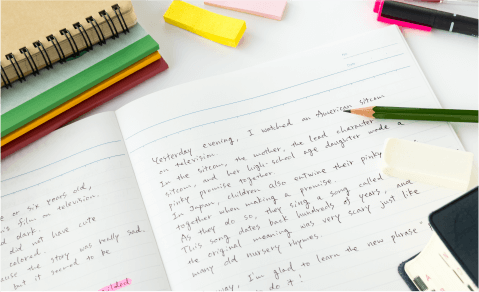 e or six years old,
's film on television.
d dark.
did not have cute
colored.
use the story was really sad.
but it seemed to be
Yesterday evening, I watched an American sitcom
on television.
In the sitcom, the mother, the lead character
sitcom, and her high-school age daughter made a
pinky promise together.
In Japan, children also entwine their pinky
together when making a promise.
As they do so, they sing a song called
This song dates back hundreds of years, and
the original meaning was very scary just like
many old nursery rhymes.
way, I'm glad to learn the new phrase
do it!